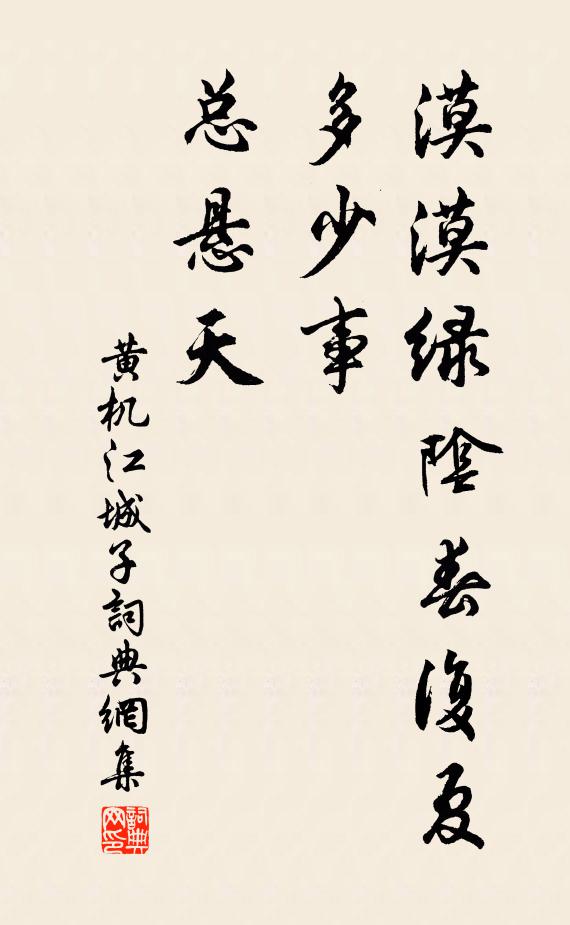 漠漠緑陰春復夏
多少事
总悬天
黄机江城子詞典網集
詞典网印